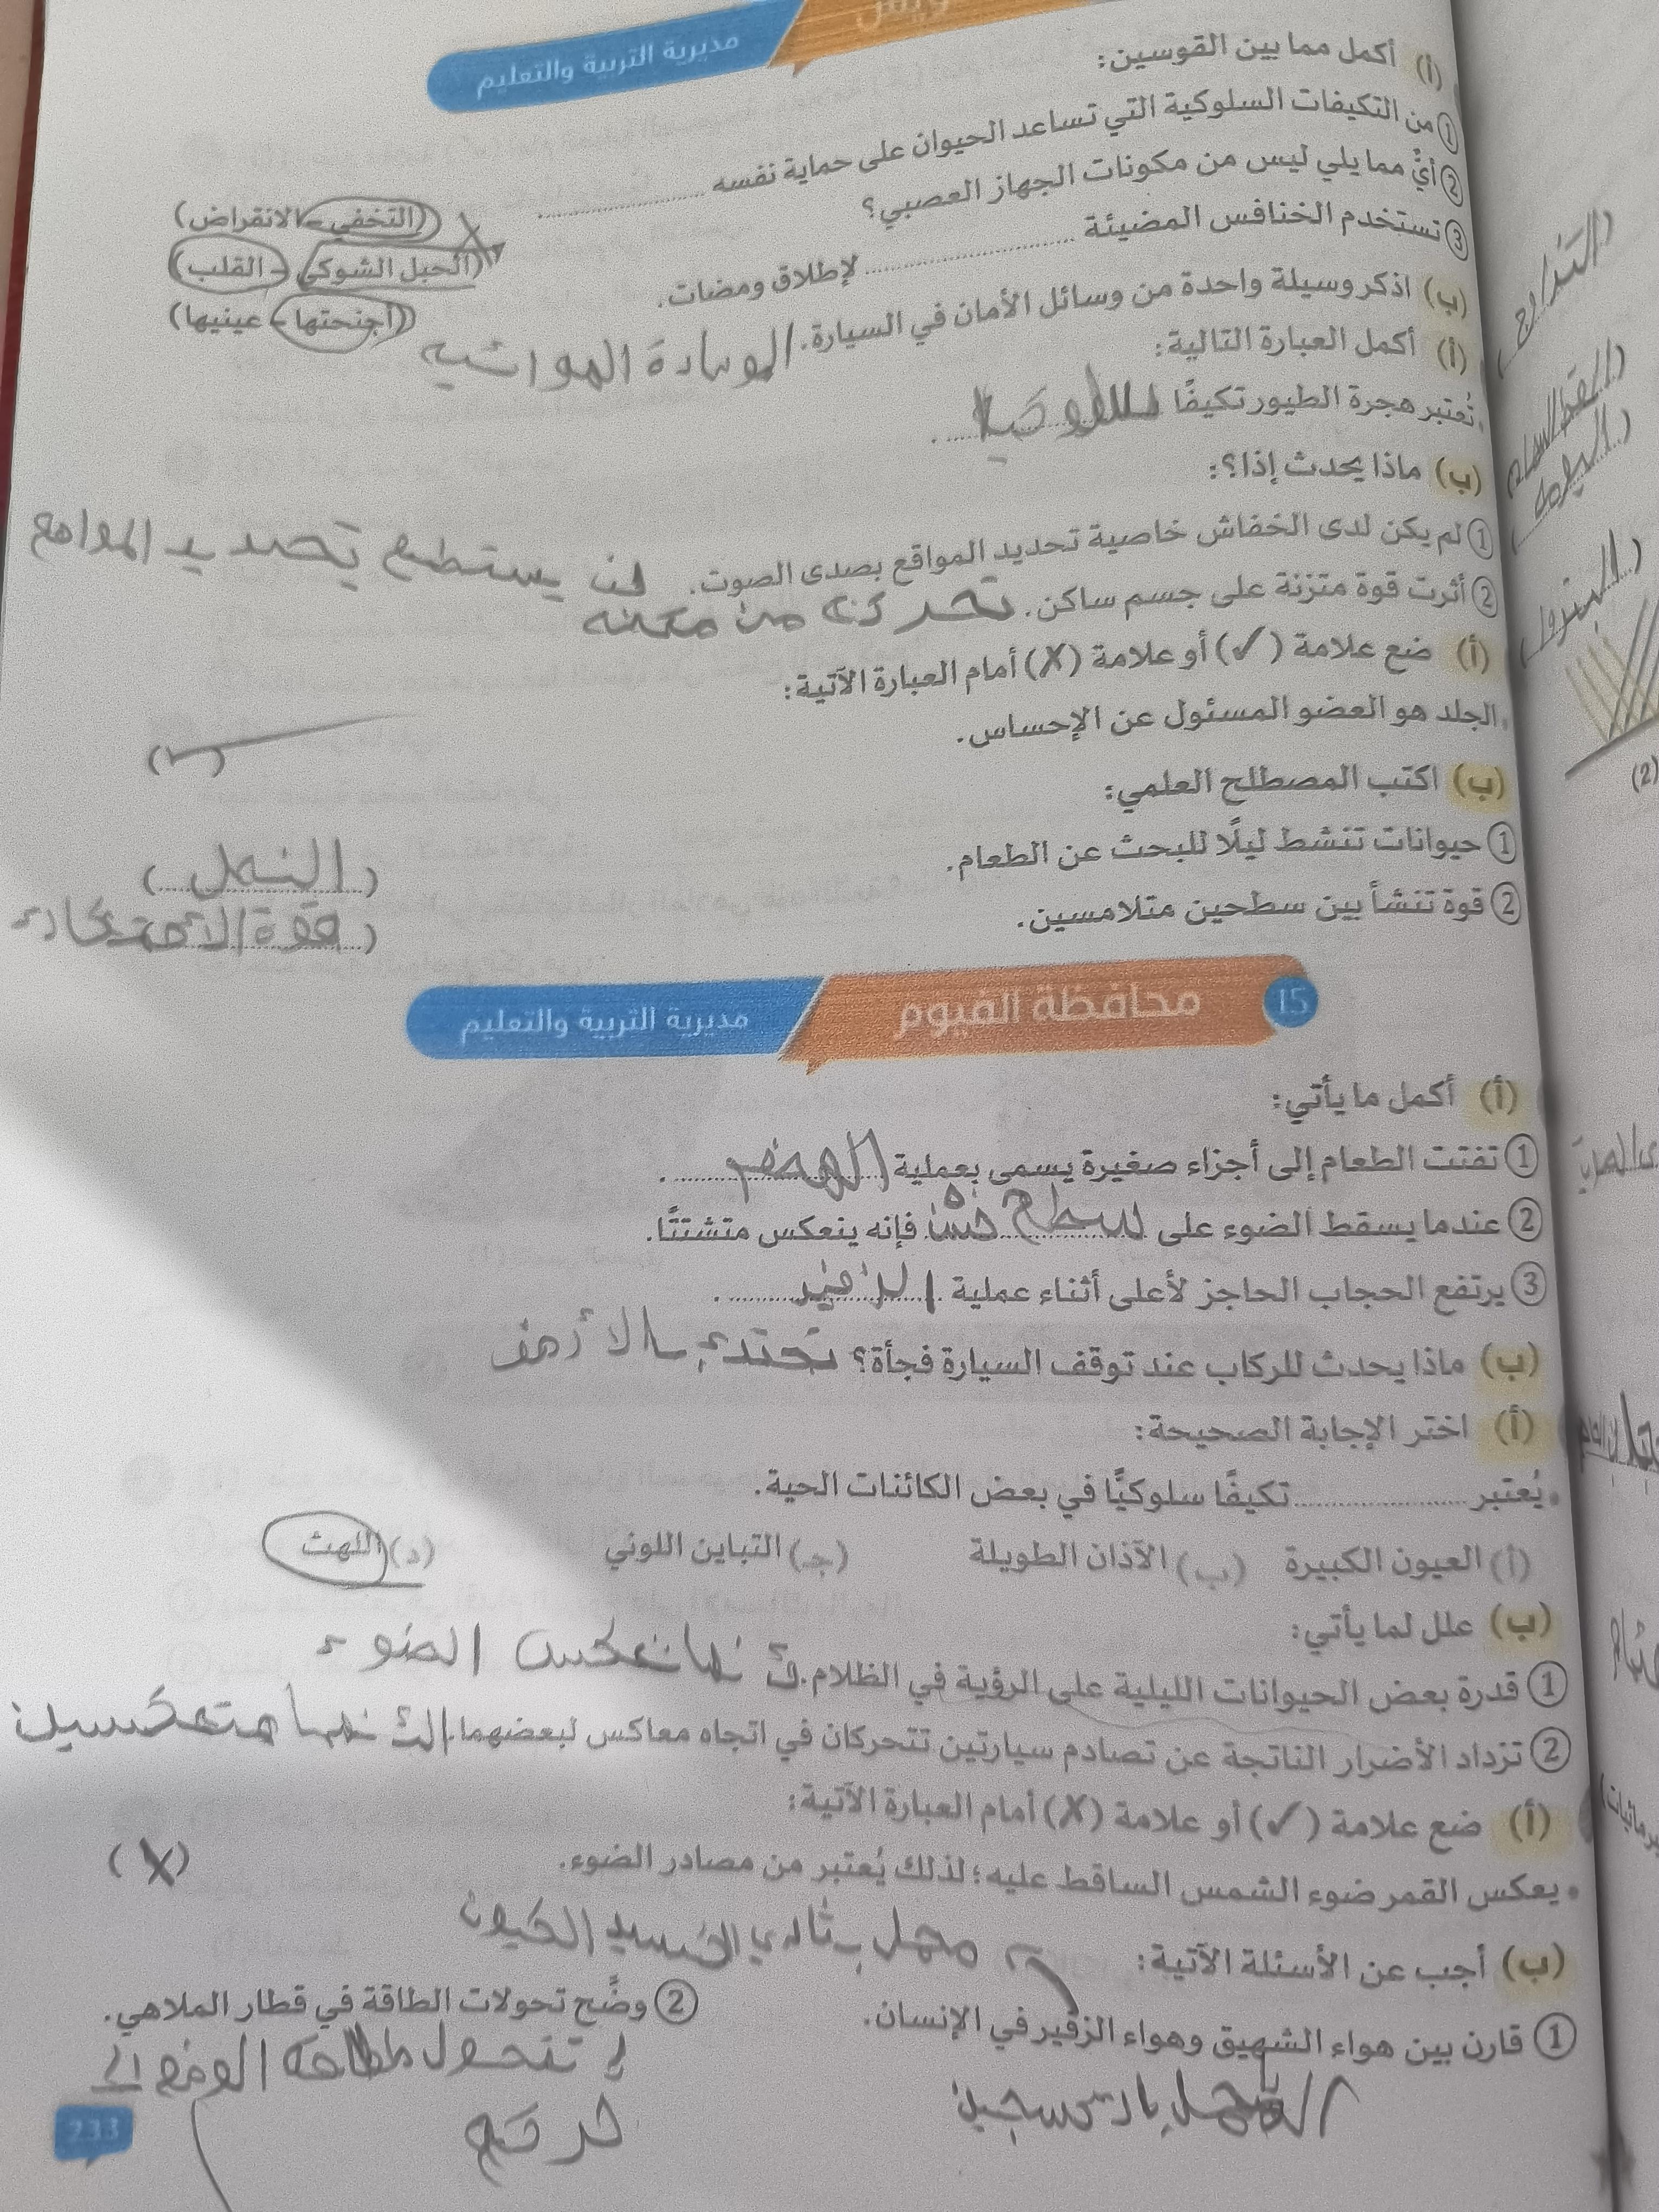 مديرية التربية والتعليم
(أ) أكمل مما بين القوسين:
① من التكيفات السلوكية التي تساعد الحيوان على حماية نفسه .......... (التخفي - الانقراض)
② أيٌّ مما يلي ليس من مكونات الجهاز العصبي؟ (الحبل الشوكي - القلب)
③ تستخدم الخنافس المضيئة .......... لإطلاق ومضات. (أجنحتها - عينيها)
(ب) اذكر وسيلة واحدة من وسائل الأمان في السيارة. الوسادة الهوائيه
(أ) أكمل العبارة التالية:
تُعتبر هجرة الطيور تكيفًا سلوكيا
(ب) ماذا يحدث إذا؟:
① لم يكن لدى الخفاش خاصية تحديد المواقع بصدى الصوت. لن يستطع تحديد المواقع
② أثرت قوة متزنة على جسم ساكن. تحركه من مكنه
(أ) ضع علامة (✓) أو علامة (✗) أمام العبارة الآتية:
الجلد هو العضو المسئول عن الإحساس. (✓)
(ب) اكتب المصطلح العلمي:
① حيوانات تنشط ليلًا للبحث عن الطعام. (النمل)
② قوة تنشأ بين سطحين متلامسين. (قوة الاحتكاك)
15 محافظة الفيوم مديرية التربية والتعليم
(أ) أكمل ما يأتي:
① تفتت الطعام إلى أجزاء صغيرة يسمى بعملية الهضم
② عندما يسقط الضوء على سطح خشن فإنه ينعكس متشتتًا.
③ يرتفع الحجاب الحاجز لأعلى أثناء عملية الزفير
(ب) ماذا يحدث للركاب عند توقف السيارة فجأة؟
(أ) اختر الإجابة الصحيحة:
يُعتبر .......... تكيفًا سلوكيًّا في بعض الكائنات الحية.
(أ) العيون الكبيرة (ب) الآذان الطويلة (جـ) التباين اللوني (د) اللهث
(ب) علل لما يأتي:
① قدرة بعض الحيوانات الليلية على الرؤية في الظلام. الضوء
② تزداد الأضرار الناتجة عن تصادم سيارتين تتحركان في اتجاه معاكس لبعضهما. متعكسين
(أ) ضع علامة (✓) أو علامة (✗) أمام العبارة الآتية:
يعكس القمر ضوء الشمس الساقط عليه؛ لذلك يُعتبر من مصادر الضوء. (X)
(ب) أجب عن الأسئلة الآتية:
① قارن بين هواء الشهيق وهواء الزفير في الإنسان.
② وضَّح تحولات الطاقة في قطار الملاهي.
تتحول طاقه الوضع إلى
حركه
233
(2)